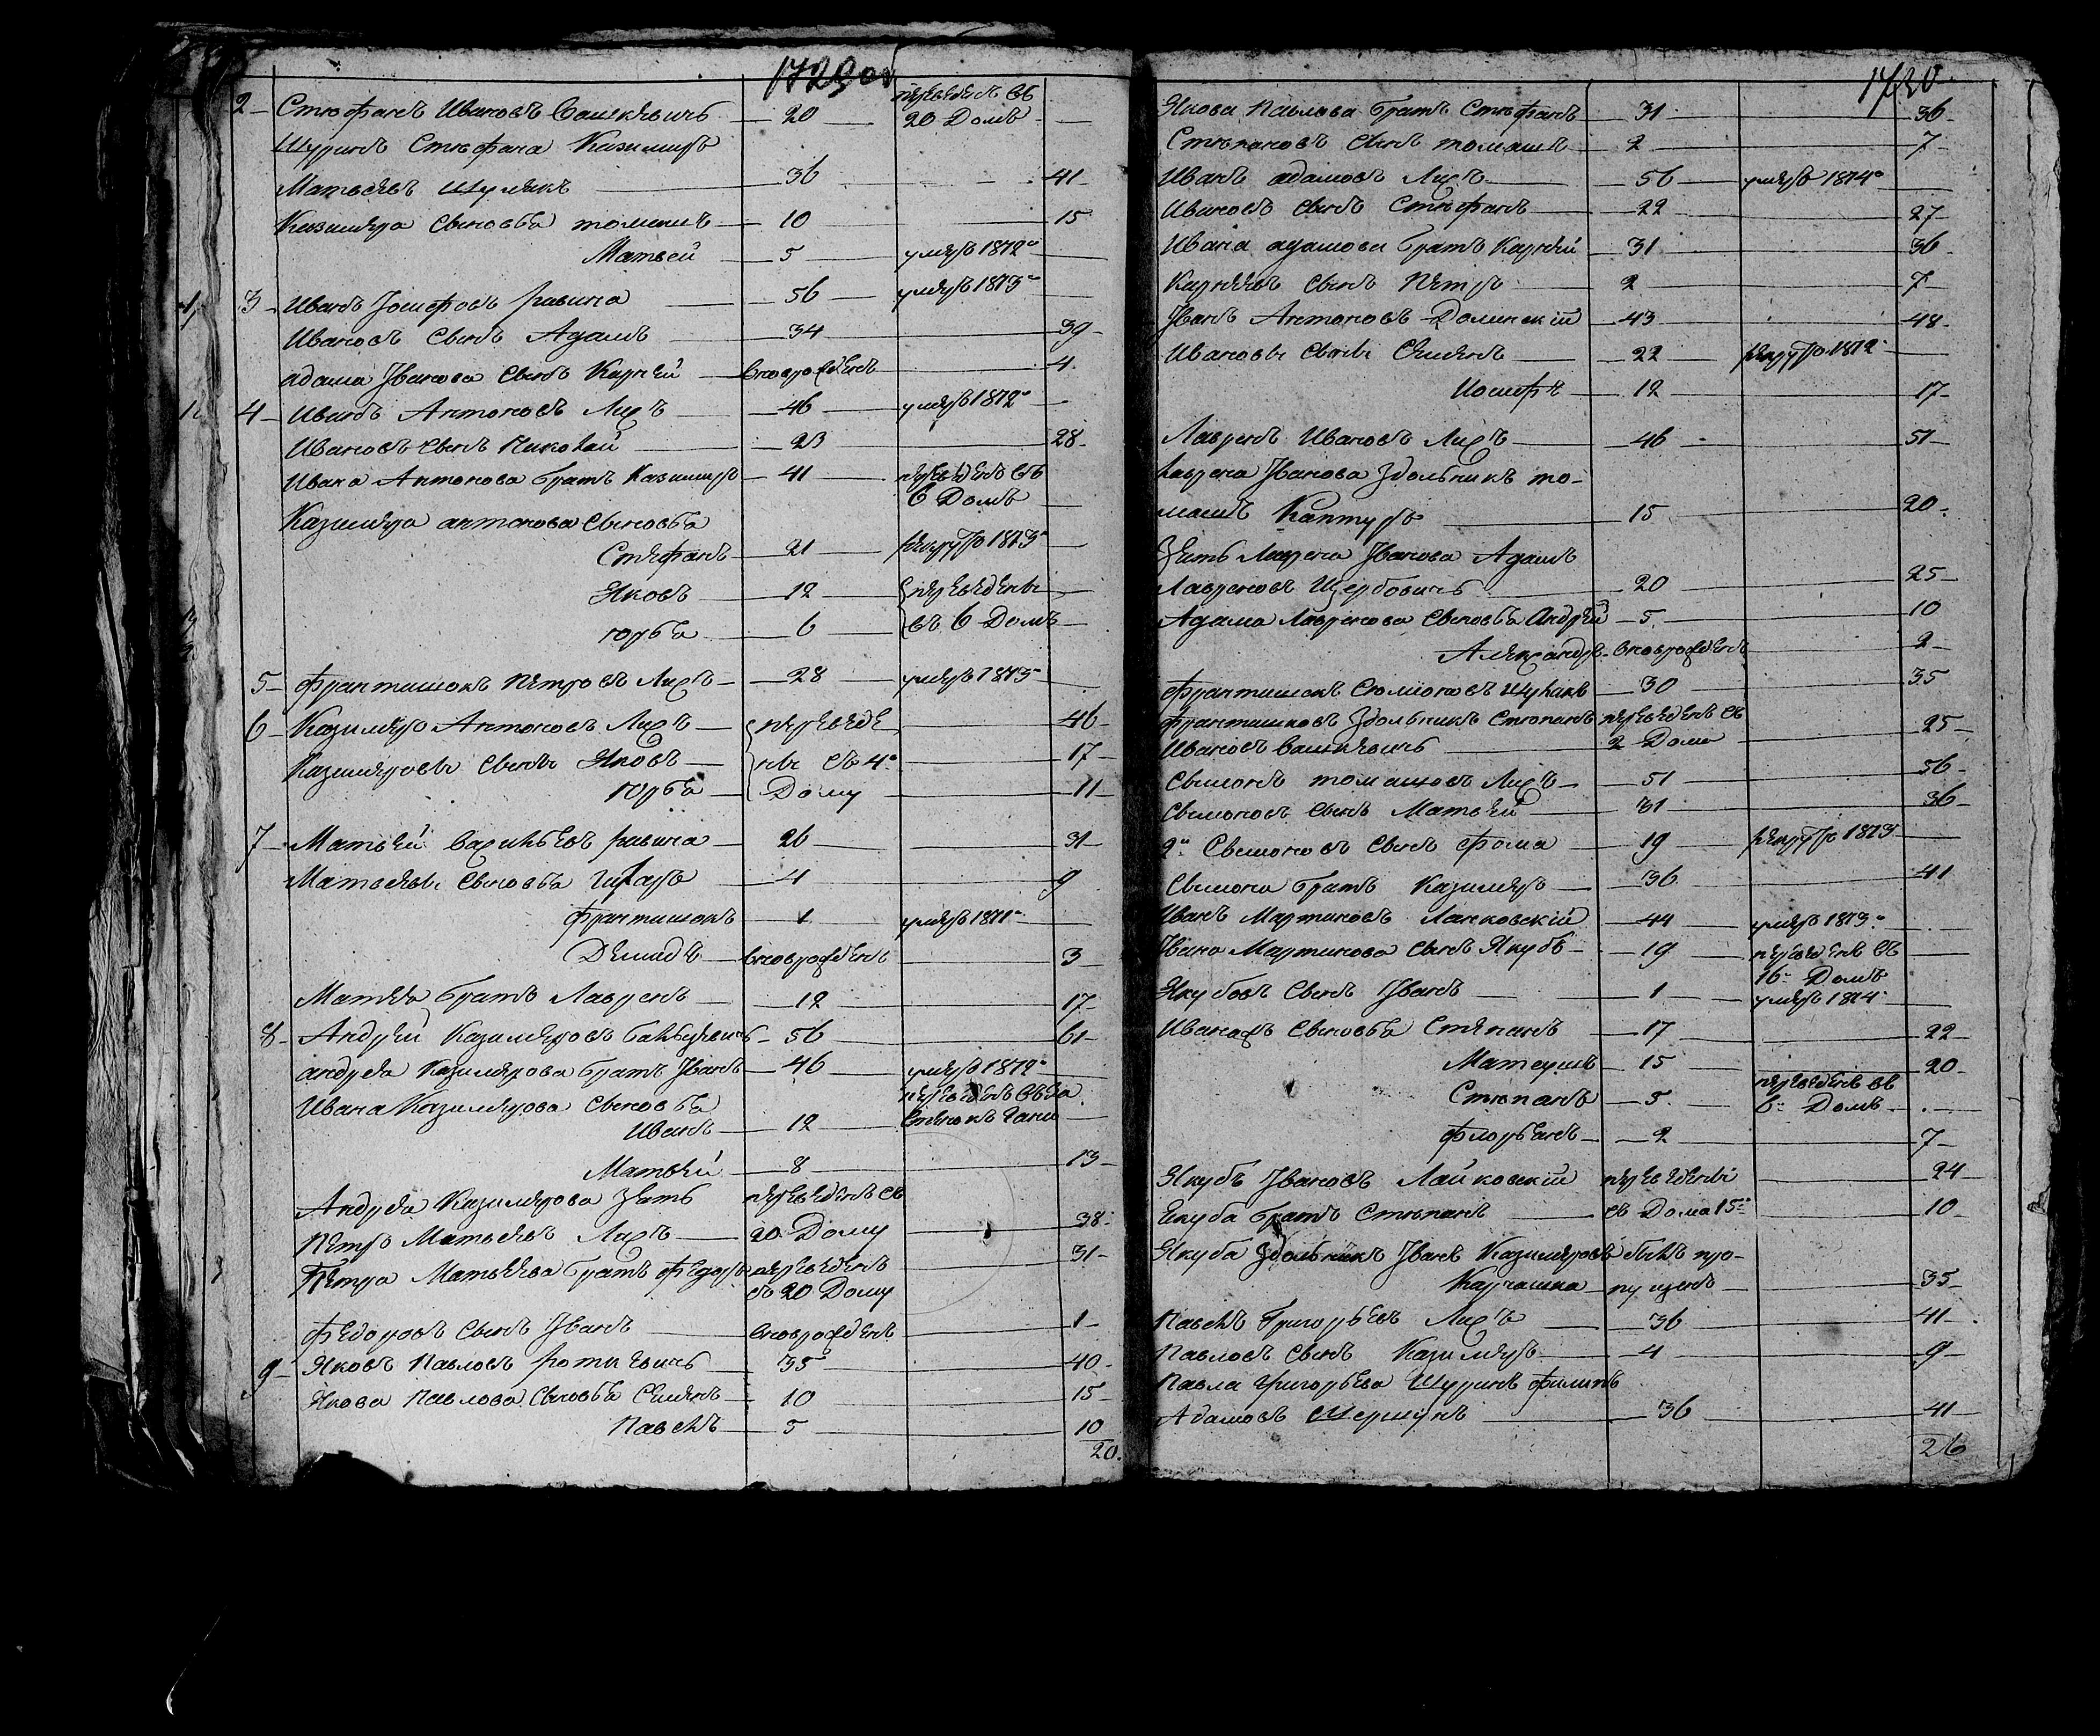 1729 об
2 Стефанъ Ивановъ Вашкевичъ 20 переведенъ въ 20 Домъ
Шуринъ Стефана Казимиръ
Матвеевъ Шулякъ 36 41
Казимера Сыновья томашъ 10 15
Матвей 5 умеръ 1812го
3 Иванъ Іосифовъ равина 56 умеръ 1813го
Ивановъ Сынъ Адамъ 34 39
адама Іванова Сынъ Карней вноврожденъ 4
4 Иванъ Антоновъ Лихъ 46 умеръ 1812го
Ивановъ Сынъ Николай 23 28
Ивана Антонова братъ Казимиръ 41 переведенъ въ 6 Домъ
Казимера антонова Сыновья
Стефанъ 21 рекрутъ 1813го
Яковъ 12 переведены
юрья 6 въ 6 Домъ
5 Франтишокъ Петровъ Лихъ 28 умеръ 1813го
6 Казимеръ Антоновъ Лихъ переведе 46
Казимеровы Сыны Яковъ ны съ 4го 17
Юрья Дому 11
7 Матвей Васильевъ равина 26 31
Матвеевы Сыновья 4 9
Франтишокъ 1 умеръ 1811го
Демидъ вноврожденъ 3
Матвея братъ Лавренъ 12 17
8 Андрей Казимеровъ 56 61
андрея Казимерова братъ Іванъ 46 умеръ 1812го
Ивана Казимерова Сыновья переведенъ въ
Иванъ 12
Матвей 8 13
Андрея Казимерова Зять переведенъ съ
Петръ Матвеевъ Лихъ 20 Дому 38
Петра Матвеева братъ Федоръ переведенъ 31
съ 20 Дому
Федоровъ Сынъ Іванъ вноврожденъ 1
9 Яковъ Павловъ 35 40
Якова Павлова Сыновья Семенъ 10 15
Павелъ 5 10
20.
1730
Якова Павлова братъ Стефанъ 31 36
Степановъ Сынъ томашъ 2 7
Иванъ адамовъ Лихъ 56 умеръ 1814го
Ивановъ Сынъ Стефанъ 22 27
Ивана адамова братъ Карней 31 36
Карнеевъ Сынъ Петръ 2 7
Іванъ Антоновъ Долинскій 43 48
Ивановы Сыны Семенъ 22 рекрутъ 1812
Іосифъ 12 17
Лавренъ Ивановъ Лихъ 46 51
Лаврена Іванова Здольникъ то-
машъ Каптуръ 15 20
Зять Лаврена Іванова Адамъ
Лавреновъ Щербовичъ 20 25
Адама Лавренова Сыновья Андрей 5 10
Александръ вноврожденъ 2
Франтишекъ Сымоновъ Шулякъ 30 35
Франтишковъ Здольникъ Степанъ переведенъ съ
Ивановъ Вашкевичъ 2 Дома 25
Сымонъ томашовъ Лихъ 51 56
Сымоновъ Сынъ Матвей 31 36
2й Сымоновъ Сынъ Фома 19 рекрутъ 1813
Сымона братъ Казимеръ 36 41
Иванъ Мартиновъ Лайковскій 44 умеръ 1813го
Ивана Мартинова Сынъ Якубъ 19 переведенъ въ 16й Домъ
Якубовъ Сынъ Іванъ 1 умеръ 1814го
Сыновья Степанъ 17 22
Матеушъ 15 20
Степанъ 5 переведенъ въ Домъ
Флорьянъ 2 7
Якубъ Івановъ Лайковскій переведены 24
Якуба братъ Степанъ съ Дома 15го 10
Якуба Здольникъ Іванъ Казимеровъ былъ про-
пущенъ 35
Павелъ Григорьевъ Лихъ 36 41
Павловъ Сынъ Казимеръ 4 9
Павла Григорьева Шуринъ филипъ
Адамовъ Шершунъ 36 41
26